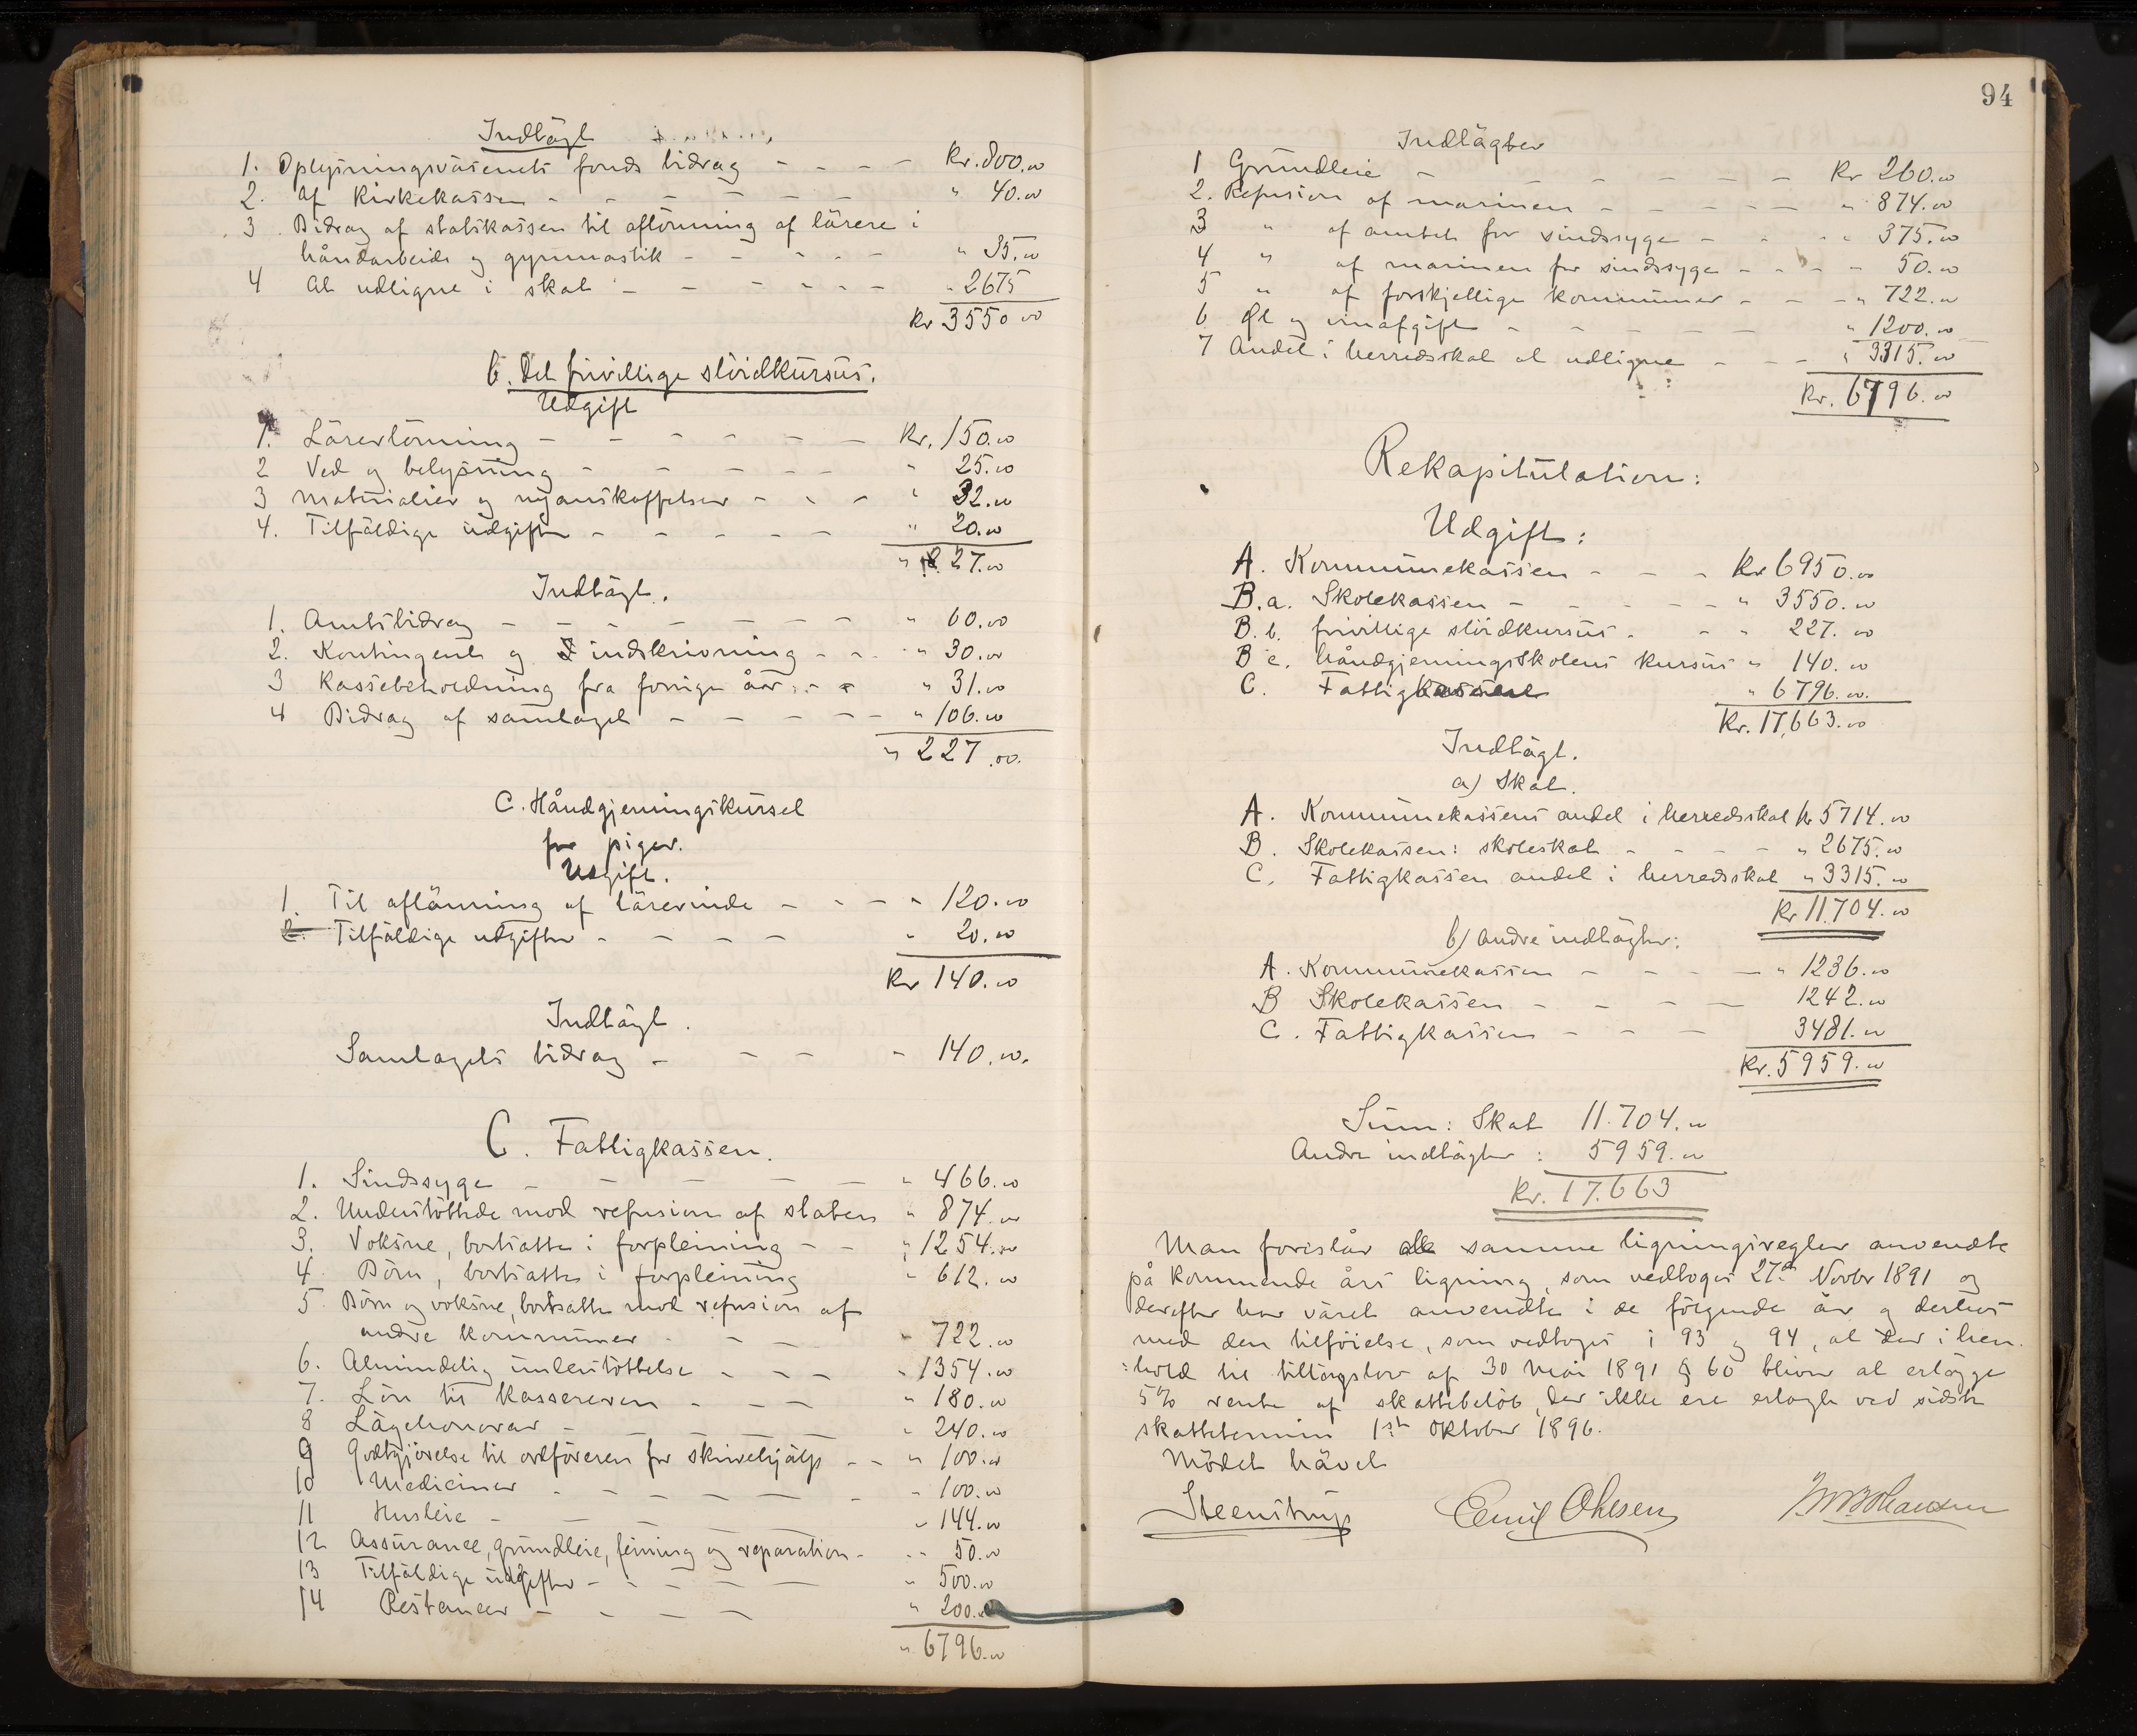 Indtägt
1. Oplysningsväsenets fonds bidrag - - - - Kr. 800.00
2. Af Kirkekassen - - - - - - " 40.00
3 Bidrag af statskassen til aflönning af lärere i
håndarbeide og gymnastik - - - - - " 35.00
4 At udligne i skat - - - - - - " 2675
Kr 3550 00
b. Det frivillige slöidkursus.
Udgift
1. Lärerlönning - - - - - - Kr. 150.00
2 Ved og belysning - - - - - " 25.00
3 Materialier og nyanskaffelser - - - " 32.00
4. Tilfäldige udgifter - - - - - " 20.00
" 227.00
Indtägt.
1. Amtsbidrag - - - - - - - " 60.00
2. Kontingent og indskrivning - - - " 30.00
3 Kassebeholdning fra forrige år - - " 31.00
4 Bidrag af samlaget - - - - - " 106.00
" 227.00.
C. Håndgjerningskursel
for piger.
Udgift.
1. Til aflönning af lärerinde - - - - " 120.00
2. Tilfäldige udgifter - - - - " 20.00
Kr 140.00
Indtägt.
Samlagets bidrag - - - - 140.00.
C. Fattigkassen.
1. Sindssyge - - - - - " 466.00
2. Understöttede mod refusion af staten " 874.00
3. Voksne, bortsatte i forpleining - - " 1254.00
4. Börn, bortsatte i forpleining " 612.00
5. Börn og voksne, bortsatte mod refusion af
andre kommuner - - - " 722.00
6. Almindelig understöttelse - - - " 1354.00
7. Lön til Kassereren - - - " 180.00
8 Lägehonorar - - - - - " 240.00
9 Godtgjörelse til ordföreren for skrivehjälp - - " 100.00
10 Mediciner - - - - - - " 100.00
11 Husleie - - - - - " 144.00
12 Assurance, grundleie, feining og reparation - " 50.00
13 Tilfäldige udgifter - - - - - " 500.00
14 Restancer - - - - " 200.00
" 6796.00
94
Indtägter
1 Grundleie - - - - - - Kr 260.00
2. Refusion af marinen - - - - - " 874.00
3 " af amtet for sindssyge - - - " 375.00
4 " af marinen for sindssyge - - - 50.00
5 " af forskjellige kommuner - - - " 722.00
6 Öl og vinafgift - - - - - " 1200.00
7 Andel i herredsskat at udligne - - - " 3315.00
Kr. 6796.00
Rekapitulation:
Udgift:
A. Kommunekassen - - - Kr 6950.00
B.a. Skolekassen - - - - - " 3550.00
B.b. frivillige slöidkursus - - " 227.00
B c. håndgjerningsskolens kursus " 140.00
C. Fattigkassen " 6796.00.
Kr. 17,663.00
Indtägt.
a) Skat.
A. Kommunekassens andel i herredsskat Kr 5714.00
B. Skolekassen: skoleskat - - - - " 2675.00
C. Fattigkassen andel i herredsskat " 3315.00
Kr 11.704.00
b) Andre indtägter:
A. Kommunekassen - - - - " 1236.00
B Skolekassen - - - - 1242.00
C. Fattigkassen - - - 3481.00
Kr. 5959.00
Sum: Skat 11.704.00
Andre indtägter: 5959.00
Kr. 17.663
Man foreslår samme ligningsregler anvendte
på kommende års ligning, som vedtoges 27de Novbr 1891 og
derefter har väret anvendte i de fölgende år og derhos
med den tilföielse, som vedtoges i 93 og 94, at der i hen-
:hold til tillägslov af 30 Mai 1891 § 60 bliver at erlägge
5% rente af skattebelöb, der ikke ere erlagte ved sidste
skattetermin 1ste Oktober 1896.
Mödet hävet
Steenstrup Emil Ohlsen